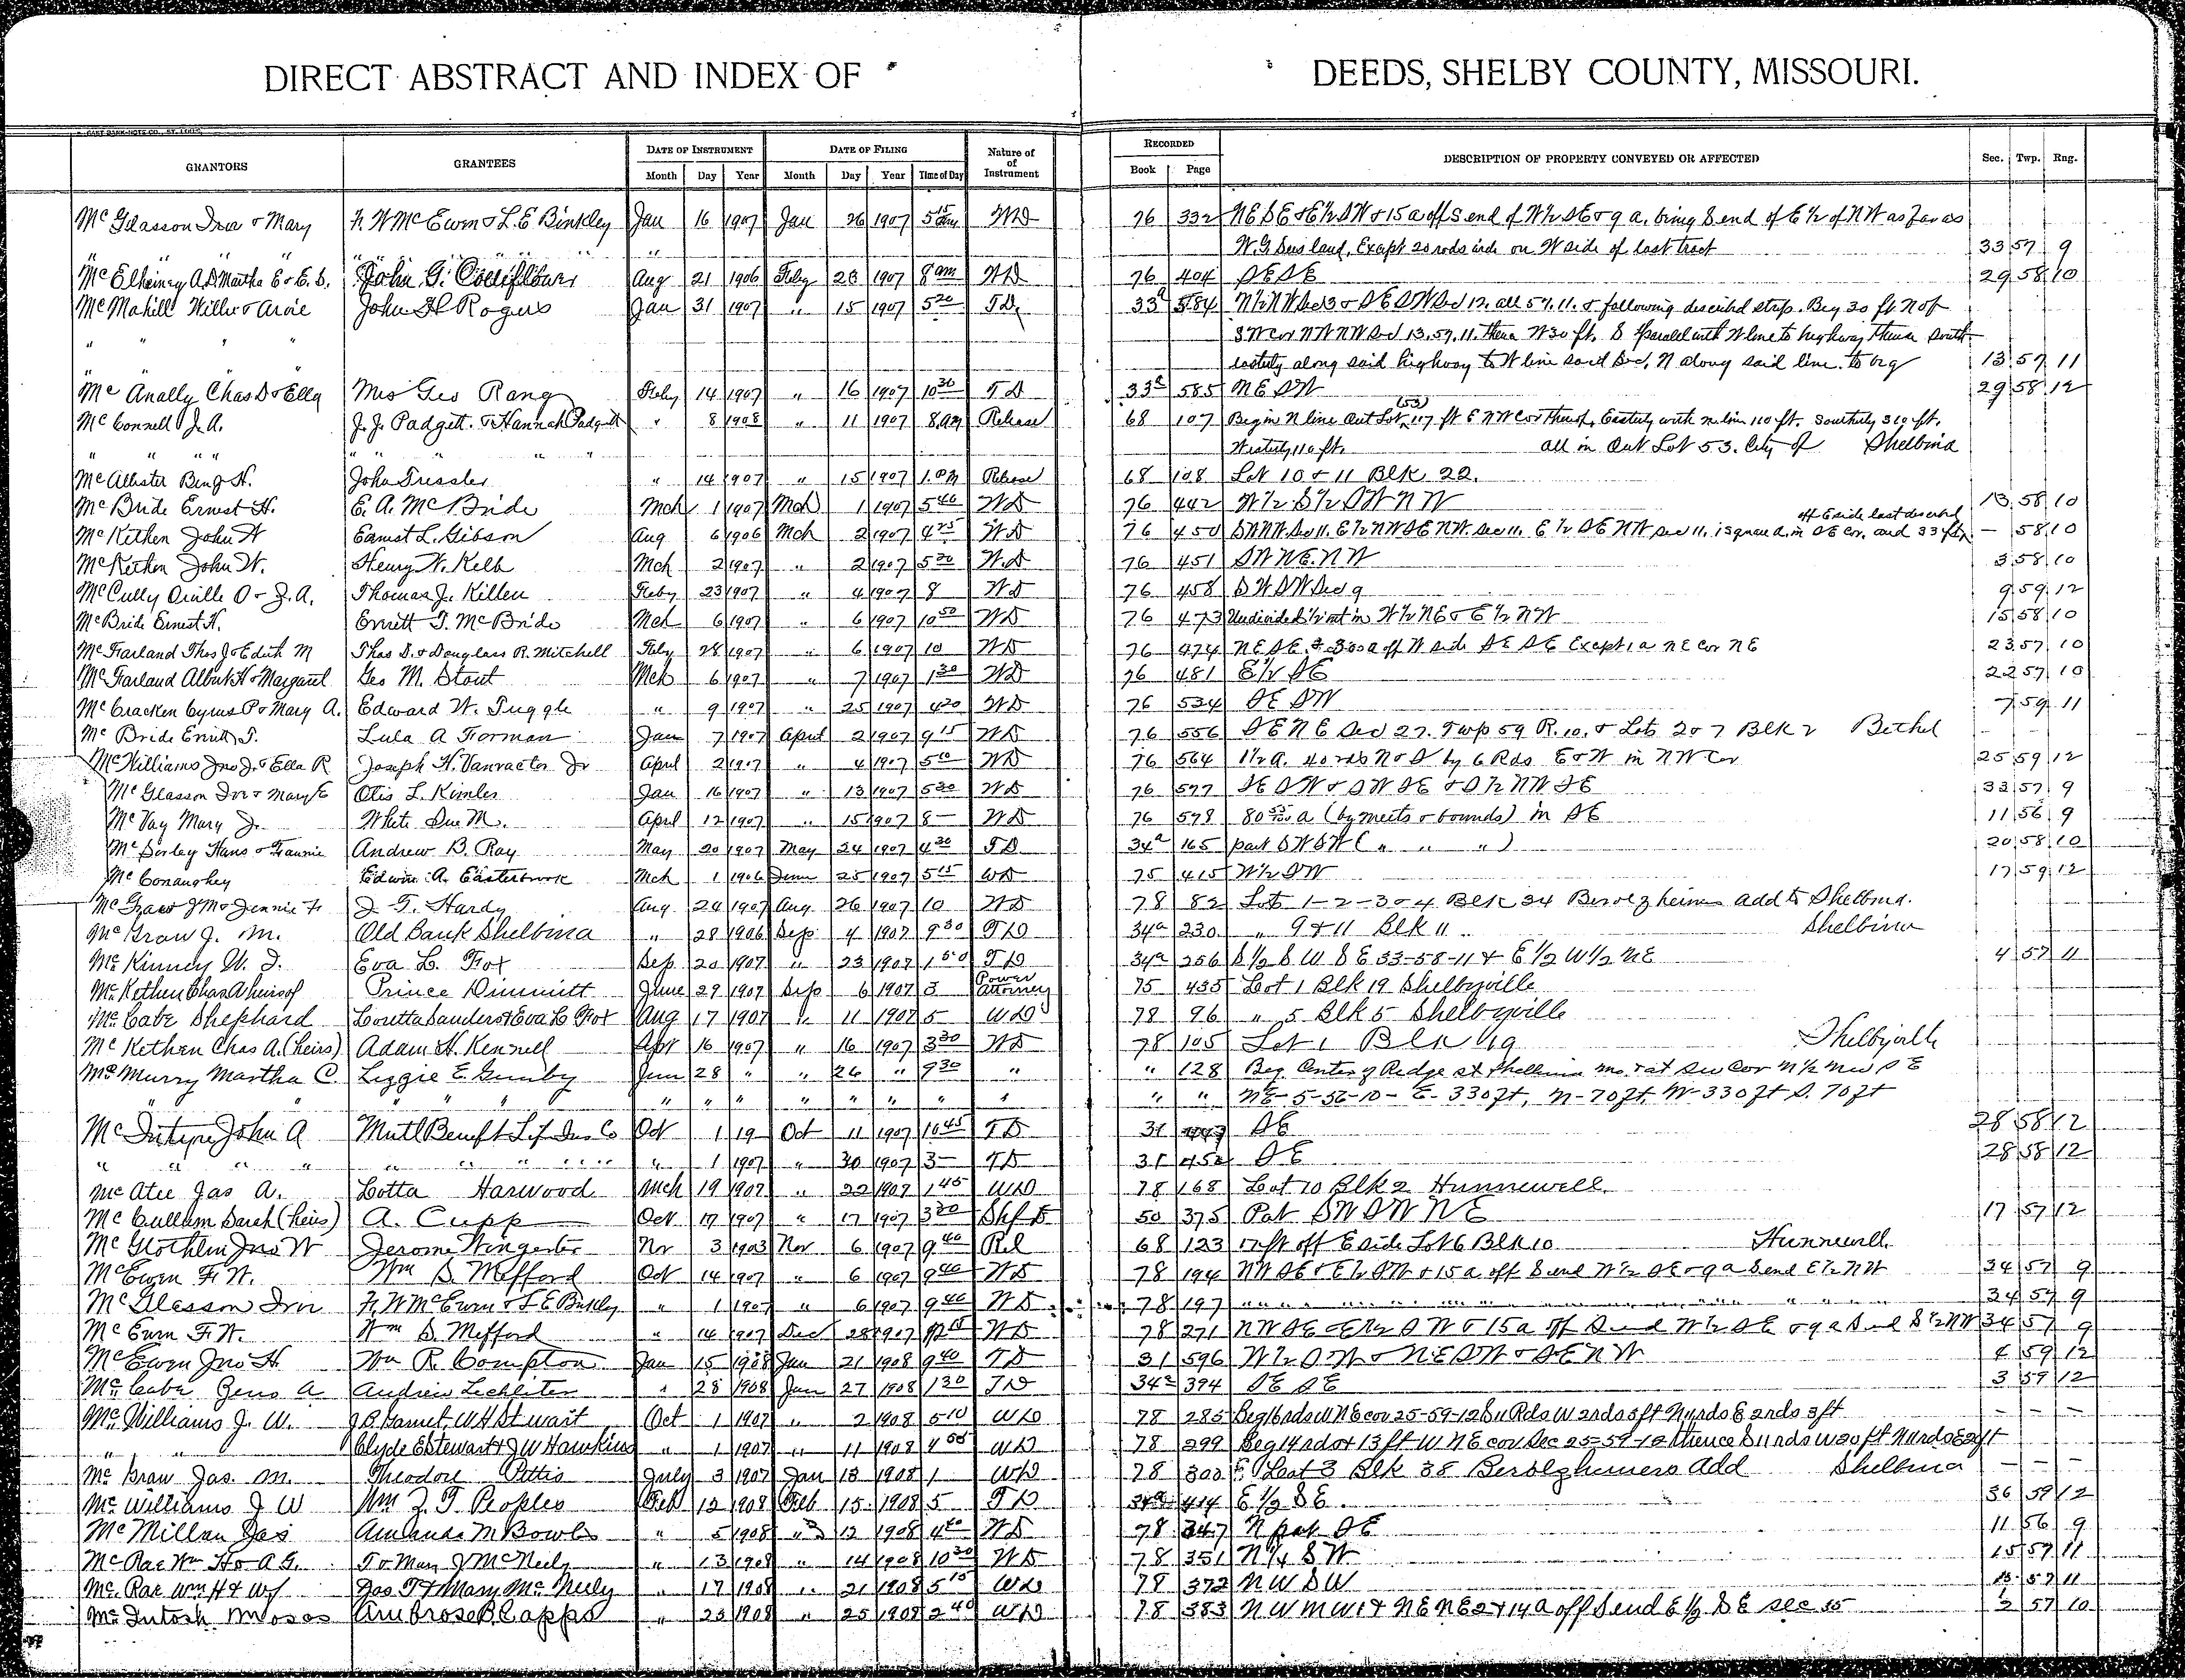 DIRECT ABSTRACT AND INDEX OF DEEDS, SHELBY COUNTY, MISSOURI.
GRANTORS GRANTEES DATE OF INSTRUMENT DATE OF FILING Nature of of Instrument RECORDED DESCRIPTION OF PROPERTY CONVEYED OR AFFECTED Sec. Twp. Rng.
Month Day Year Month Day Year Time of Day Book Page
McGlasson Iva & Mary F. W McEwen & L. E Binkley Jan 16 1907 Jan 26 1907 5 15 WD 76 332 NE SE & E½ SW & 15 a off S end of W½ SE & 9 a. being S end of E½ of NW as far as
" " " " " " " W. G. land, Except 20 rods wide on W side of last tract 33 57 9
McElhiney A. D Martha E & E. S. John G. Aug 21 1906 Feby 23 1907 8 am WD 76 404 SE SE 29 58 10
McMahill Willie & John H Rogers Jan 31 1907 " 15 1907 5 20 T D 33a 584 W½ NW Sec 13 & SE SW Sec 12. all 57. 11. & following described strip. Beg 30 ft N of
" " " " SW cor NW NW Sec 13. 57. 11. thence W 30 ft. S parallel with W line to highway thence south-
easterly along said highway to W line said Sec, N along said line. to beg 13 57 11
McAnally Chas D & Ella Mrs Geo Rang Feby 14 1907 " 16 1907 10 30 T D 33a 585 NE SW 29 58 12
McConnell J. A. J. J. Padgett & Hannah Padgett " 8 1908 " 11 1907 8 am Release 68 107 Beg in N line Out Lot (53) 117 ft E NW Cor thereof, Easterly with n. line 110 ft. Southerly 310 ft.
" " " " " " " " " Westerly 110 ft. all in Out Lot 53. City of Shelbina
McAllister Benj H. John Tressler " 14 1907 " 15 1907 1 PM Release 68 108 Lot 10 & 11 Blk 22.
McBride Ernest H. E. A. McBride Mch 1 1907 Mch 1 1907 5 40 WD 76 442 W½ S½ SW NW 13 58 10
off E side last described
McKethen John W Earnest L. Gibson Aug 6 1906 Mch 2 1907 4 25 WD 76 450 SW NW Sec 11. E½ NW SE NW. sec 11. E½ SE NW Sec 11. 1 square a. in SE cor. and 33 ft — 58 10
McKethen John W. Henry W. Kelb Mch 2 1907 " 2 1907 5 20 WD 76 451 SW NE. NW 3 58 10
McCully Orville O & J. A. Thomas J. Killen Feby 23 1907 " 4 1907 8 WD 76 458 SW SW Sec 9 9 59 12
McBride Ernest H. Errett T. McBride Mch 6 1907 " 6 1907 10 50 WD 76 473 Undivided ½ int in W½ NE & E½ NW 15 58 10
McFarland Thos J & Edith M Thos D. & Douglass R. Mitchell Feby 28 1907 " 6 1907 10 WD 76 474 NE SE & 30 a off W side SE SE Except 1 a NE cor NE 23 57 10
McFarland Albert H & Margaret Geo M. Stout Mch 6 1907 " 7 1907 1 30 WD 76 481 E½ SE 22 57 10
McCracken Cyrus P & Mary A. Edward W. Tuggle " 9 1907 " 25 1907 4 20 WD 76 534 SE SW 7 59 11
McBride Errett T. Lula A Forman Jan 7 1907 April 2 1907 9 15 WD 76 556 SE NE Sec 27. Twp 59 R. 10. & Lots 2 & 7 Blk 2 Bethel — —
McWilliams Jno J. & Ella R Joseph H. Vanvacter Jr April 2 1907 " 4 1907 5 00 WD 76 564 1½ a. 40 rds N & S by 6 Rds E & W in NW Cor 25 59 12
McGlasson Ivr & Mary E Otis L. Kimler Jan 16 1907 " 13 1907 5 30 WD 76 577 SE SW & SW SE & S½ NW SE 33 57 9
McVay Mary J. White Sue M. April 12 1907 " 15 1907 8 — WD 76 578 80 a (by meets & bounds) in SE 11 56 9
McSorley Hans & Fannie Andrew B. Ray May 20 1907 May 24 1907 4 30 T D 34a 165 part SW SW ( " " " ) 20 58 10
McConaughey Edwin A. Easterbrook Mch 1 1906 June 25 1907 5 15 WD 75 415 W½ SW 17 59 12
McGraw J M & Jennie F. J. T. Hardy Aug 24 1907 Aug 26 1907 10 WD 78 82 Lots 1-2-3 & 4 Blk 34 Berolzheimer add to Shelbina.
McGraw J. M. Old Bank Shelbina " 28 1906 Sep 4 1907 9 30 T D 34a 230 " 9 & 11 Blk 11 Shelbina
McKinney W. J. Eva L. Fox Sep 20 1907 " 23 1907 1 50 T D 34a 256 S½ SW SE 33-58-11 & E½ W½ NE 4 57 11
McKethen Chas A heirs of Prince Dimmitt June 29 1907 Sep 6 1907 3 Power Attorney 75 435 Lot 1 Blk 19 Shelbyville
McCabe Shephard Loutta Sanders & Eva L Fox Aug 17 1907 " 11 1907 5 WD 78 96 " 5 Blk 5 Shelbyville
McKethen Chas A. (heirs) Adam H. Kennell Apr 16 1907 " 16 1907 3 30 WD 78 105 Lot 1 Blk 19 Shelbyville
McMurry Martha C. Lizzie E. Gunby Jun 28 " " 26 " 9 30 " " 128 Beg Center of Ridge st Shelbina Mo. & at sw Cor N½ NW SE
" " " " " " " " " " " " " " NE- 5-56-10 - E- 330 ft, N- 70 ft, W- 330 ft S. 70 ft
McIntyre John A Mutl Benefit Lif Ins Co Oct 1 19 Oct 11 1907 10 45 T D 31 SE 28 58 12
" " " " " " " " " 1 1907 " 30 1907 3 — T D 31 452 SE 28 58 12
McAtee Jas A. Lotta Harwood Mch 19 1907 " 22 1907 1 45 WD 78 168 Lot 10 Blk 2 Hunnewell.
McCullam Sarah (heirs) A. Cupp Oct 17 1907 " 17 1907 3 20 Shf D 50 375 Pat SW SW NE 17 57 12
McGlothlin Jno W Jerome Wingerter Nv 3 1903 Nov 6 1907 9 40 Rel 68 123 17 ft off E side Lot 6 Blk 10 Hunnewell.
McEwen F. W. Wm S. Mefford Oct 14 1907 " 6 1907 9 40 WD 78 194 NW SE & E½ SW & 15 a off S end W½ SE & 9 a S end E½ NW 34 57 9
McGlasson Iva F. W McEwen & L E Binkley " 1 1907 " 6 1907 9 40 WD 78 197 " " " " " " " " " 34 57 9
McEwen F. W. Wm S. Mefford " 14 1907 Dec 28 1907 WD 78 271 NW SE & E½ SW & 15 a off S end W½ SE & 9 a S end S½ NW 34 57 9
McEwen Jno H. Wm R. Compton Jan 15 1908 Jan 21 1908 9 40 T D 31 596 W½ SW & NE SW & SE NW 4 59 12
McCabe Geno A Andrew Lechliter " 28 1908 Jan 27 1908 1 30 T D 34a 394 SE SE 3 59 12
McWilliams J. W. J. B. Garnet, W H Stuart Oct 1 1907 " 2 1908 5 10 WD 78 285 Beg 16 rds W NE cor 25-59-12 S 11 Rds W 2 rds 3 ft N 11 rds E 2 rds 3 ft — — —
" " Clyde E Stewart & J W Hawkins " 1 1907 " 11 1908 WD 78 299 Beg 14 rds & 13 ft W NE cor Sec 25-59-12 thence S 11 rds W 20 ft N 11 rds E 20 ft
McGraw Jas. M. Theodore Pettis July 3 1907 Jan 13 1908 1 WD 78 300 Lot 3 Blk 38 Berolzheimers Add Shelbina — — —
McWilliams J W Wm Z. T. Peoples Feb 12 1908 Feb 15 1908 5 T D 34a 414 E½ SE. 36 59 12
McMillan Jas Amanda M Bowls " 5 1908 " 12 1908 4 40 WD 78 347 N part SE 11 56 9
McRae Wm H & A G. T & Mary J McNeely " 13 1908 " 14 1908 10 30 WD 78 351 N¼ SW 15 57 11
McRae Wm H & Wf Jas T & Mary McNeely " 17 1908 " 21 1908 5 15 WD 78 372 NW SW 57 11
McIntosh Moses Ambrose B Capps " 23 1908 " 25 1908 2 40 WD 78 383 NW NW 1 & NE NE 2 & 14 a off S end E½ SE sec 35 57 10